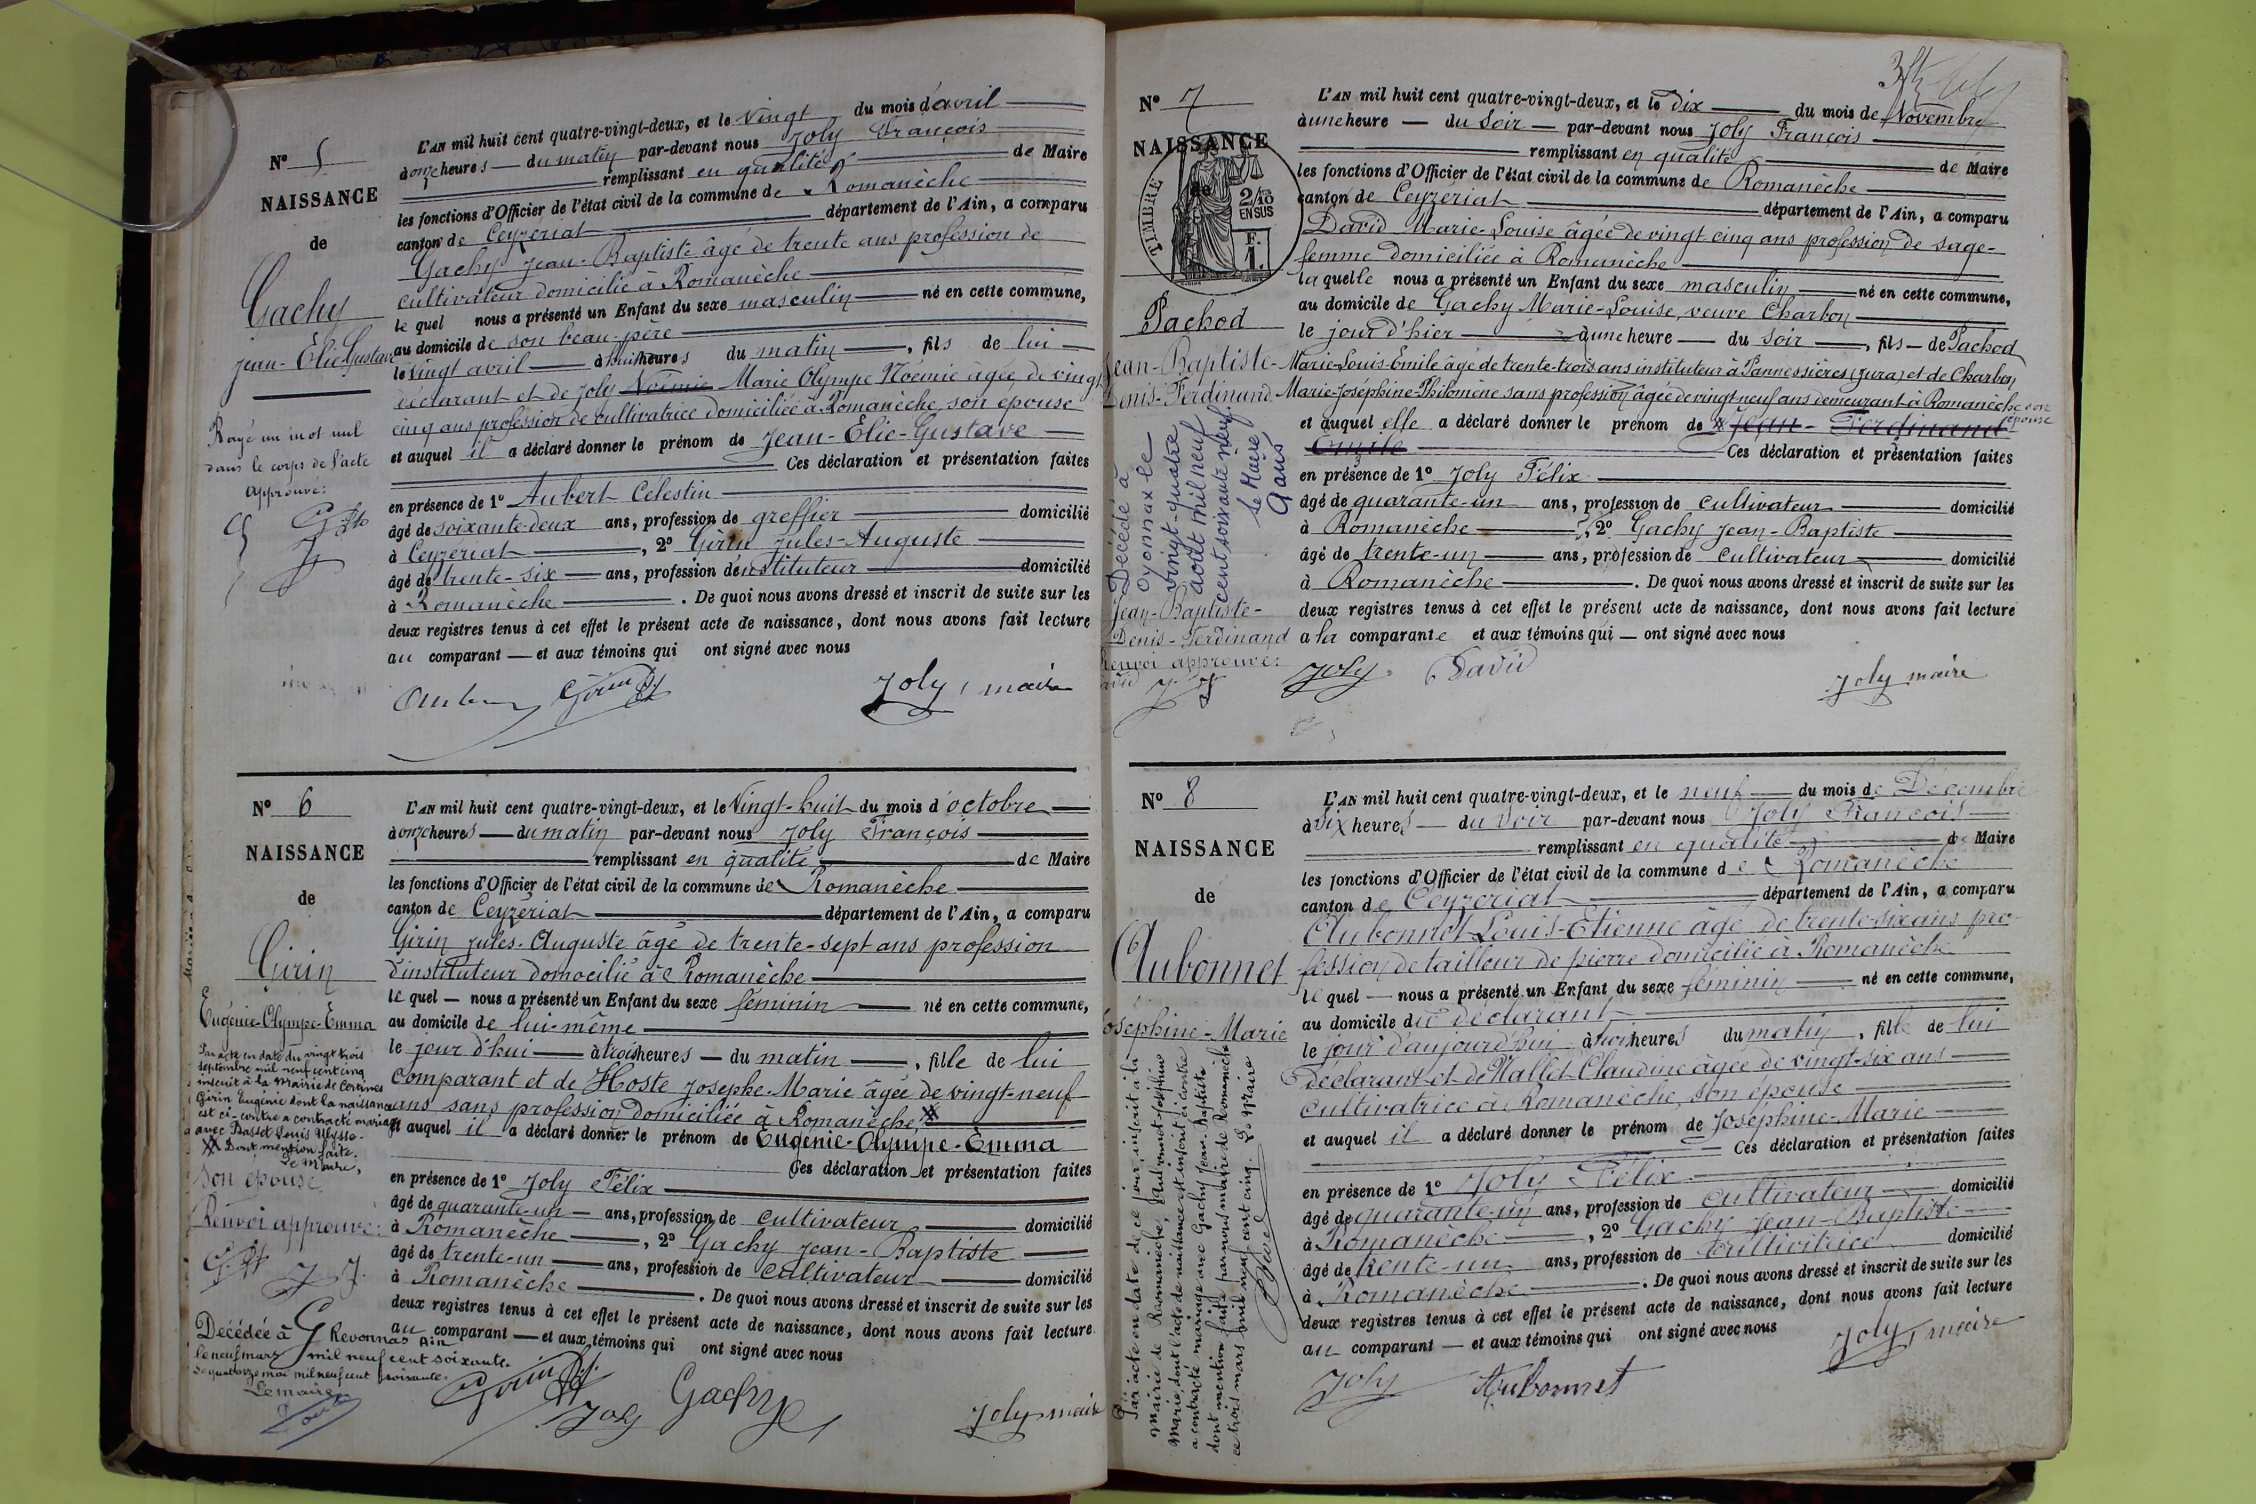 N° 5
NAISSANCE
de
Gachy
Jean-Elie-Gustave
Rayé un mot nul
dans le corps de l'acte
approuvé:
L'AN mil huit cent quatre-vingt-deux, et le vingt du mois d'avril
à onze heures du matin par-devant nous Joly François
remplissant en qualité de Maire
les fonctions d'Officier de l'état civil de la commune de Romanèche
canton de Ceyzeriat département de l'Ain, a comparu
Gachy Jean-Baptiste âgé de trente ans profession de
cultivateur domicilié à Romanèche
lequel nous a présenté un Enfant du sexe masculin né en cette commune,
au domicile de son beau-père
le vingt avril à huit heures du matin, fils de lui
déclarant et de Joly Noémie Marie Olympe Noémie âgée de vingt
cinq ans profession de cultivatrice domiciliée à Romanèche son épouse
et auquel il a déclaré donner le prénom de Jean-Elie-Gustave
Ces déclaration et présentation faites
en présence de 1° Aubert Celestin
âgé de soixante-deux ans, profession de greffier domicilié
à Ceyzeriat, 2° Girin Jules-Auguste
âgé de trente-six ans, profession d'instituteur domicilié
à Romanèche. De quoi nous avons dressé et inscrit de suite sur les
deux registres tenus à cet effet le présent acte de naissance, dont nous avons fait lecture
au comparant et aux témoins qui ont signé avec nous
Girin Joly, maire
N° 6
NAISSANCE
de
Girin
Eugénie-Olympe-Emma
Par acte en date du vingt trois
septembre mil neuf cent cinq
inscrit à la Mairie de
Girin Eugénie dont la naissance
est ci-contre a contracté mariage
avec Basset Louis Ulysse.
Dont mention faite.
Le Maire,
Son épouse
Renvoi approuvé:
J. J.
Décédée à Revonnas Ain
le neuf mars mil neuf cent soixante.
le quatorze mai mil neuf cent soixante.
Le maire
L'AN mil huit cent quatre-vingt-deux, et le Vingt-huit du mois d'octobre
à onze heures du matin par-devant nous Joly François
remplissant en qualité de Maire
les fonctions d'Officier de l'état civil de la commune de Romanèche
canton de Ceyzériat département de l'Ain, a comparu
Girin Jules-Auguste âgé de trente-sept ans profession
d'instituteur domocilié à Romanèche
lequel nous a présenté un Enfant du sexe féminin né en cette commune,
au domicile de lui-même
le jour d'hui à trois heures du matin, fille de lui
comparant et de Hoste Josephe-Marie âgée de vingt-neuf
ans sans profession domiciliée à Romanèche
et auquel il a déclaré donner le prénom de Eugénie-Olympe-Emma
Ces déclaration et présentation faites
en présence de 1° Joly Félix
âgé de quarante-un ans, profession de cultivateur domicilié
à Romanèche, 2° Gachy Jean-Baptiste
âgé de trente-un ans, profession de cultivateur domicilié
à Romanèche. De quoi nous avons dressé et inscrit de suite sur les
deux registres tenus à cet effet le présent acte de naissance, dont nous avons fait lecture
au comparant et aux témoins qui ont signé avec nous
Girin Joly Gachy Joly maire
N° 7
NAISSANCE
de
TIMBRE
2/10
EN SUS
F.
1.
Pachod
Jean-Baptiste-
Denis-Ferdinand
Décédé à
Oyonnax le
vingt-quatre
août mil neuf
cent soixante neuf.
Le Maire
Jean-Baptiste-
Denis-Ferdinand
renvoi approuvé:
L'AN mil huit cent quatre-vingt-deux, et le dix du mois de Novembre
à une heure du soir par-devant nous Joly François
remplissant en qualité de Maire
les fonctions d'Officier de l'état civil de la commune de Romanèche
canton de Ceyzériat département de l'Ain, a comparu
David Marie-Louise âgée de vingt cinq ans profession de sage-
femme domiciliée à Romanèche
laquelle nous a présenté un Enfant du sexe masculin né en cette commune,
au domicile de Gachy Marie-Louise, veuve Charbon
le jour d'hier à une heure du soir, fils de Pachod
Marie-Louis-Emile âgé de trente-trois ans instituteur à Pannessières (Jura) et de Charbon
Marie-Joséphine-Philomène sans profession âgée de vingt neuf ans demeurant à Romanèche son
épouse
et auquel elle a déclaré donner le prénom de Jean-Ferdinand
Emile Ces déclaration et présentation faites
en présence de 1° Joly Félix
âgé de quarante-un ans, profession de cultivateur domicilié
à Romanèche, 2° Gachy Jean-Baptiste
âgé de trente-un ans, profession de cultivateur domicilié
à Romanèche. De quoi nous avons dressé et inscrit de suite sur les
deux registres tenus à cet effet le présent acte de naissance, dont nous avons fait lecture
à la comparante et aux témoins qui ont signé avec nous
Joly David Joly maire
N° 8
NAISSANCE
de
Aubonnet
Joséphine-Marie
Par acte en date de ce jour, inscrit à la
Mairie de Romanèche, Aubonnet Joséphine
Marie, dont l'acte de naissance est inscrit ci-contre
a contracté mariage avec Gachy Jean-Baptiste
dont mention faite par nous maire de Romanèche
ce trois mars mil neuf cent cinq. Le Maire
L'AN mil huit cent quatre-vingt-deux, et le neuf du mois de Décembre
à six heures du soir par-devant nous Joly François
remplissant en qualité de Maire
les fonctions d'Officier de l'état civil de la commune de Romanèche
canton de Ceyzeriat département de l'Ain, a comparu
Aubonnet Louis-Etienne âgé de trente-six ans pro-
fession de tailleur de pierre domicilié à Romanèche
lequel nous a présenté un Enfant du sexe féminin né en cette commune,
au domicile du déclarant
le jour d'aujourd'hui à heures du matin, fille de lui
déclarant et de Mallet Claudine âgée de vingt-six ans
cultivatrice à Romanèche, son épouse
et auquel il a déclaré donner le prénom de Joséphine-Marie
Ces déclaration et présentation faites
en présence de 1° Joly Félix
âgé de quarante-un ans, profession de cultivateur domicilié
à Romanèche, 2° Gachy Jean-Baptiste
âgé de trente-un ans, profession de domicilié
à Romanèche. De quoi nous avons dressé et inscrit de suite sur les
deux registres tenus à cet effet le présent acte de naissance, dont nous avons fait lecture
au comparant et aux témoins qui ont signé avec nous
Joly Aubonnet Joly, maire